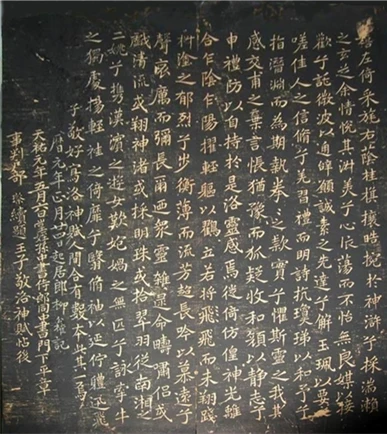 嬉左倚采旄右蔭桂旗攘皓捥於神滸兮采湍瀨
之玄芝余情悅其淑美兮心振蕩而不怡無良媒以接
歡兮託微波以通辭願誠素之先達兮解玉珮以要之
嗟佳人之信脩兮羌習禮而明詩抗瓊珶以和予兮
指潛淵而為期執拳拳之款實兮懼斯靈之我欺
感交甫之棄言悵猶豫而狐疑收和顏以靜志兮
申禮防以自持於是洛靈感焉徙倚仿偟神光離
合乍陰乍陽擢輕軀以鶴立若將飛而未翔踐
椒塗之郁烈兮步衡薄而流芳超長吟以慕遠兮
聲哀厲而彌長爾迺眾靈雜遝命疇嘯侶或
戲清流或翔神渚或採明珠或拾翠羽從南湘之
二妃兮攜漢濱之遊女歎炮媧之無匹兮詠牽牛
之獨處揚輕袿之倚靡兮翳脩袖以延佇體迅飛
子敬好寫洛神賦人間合有數本此其一焉寶
曆元年正月廿四日起居郎柳公權記
天祐元年五月六日堂姪孫中書侍郎同中書門下平章
事判戶部璨續題王子敬洛神賦帖後